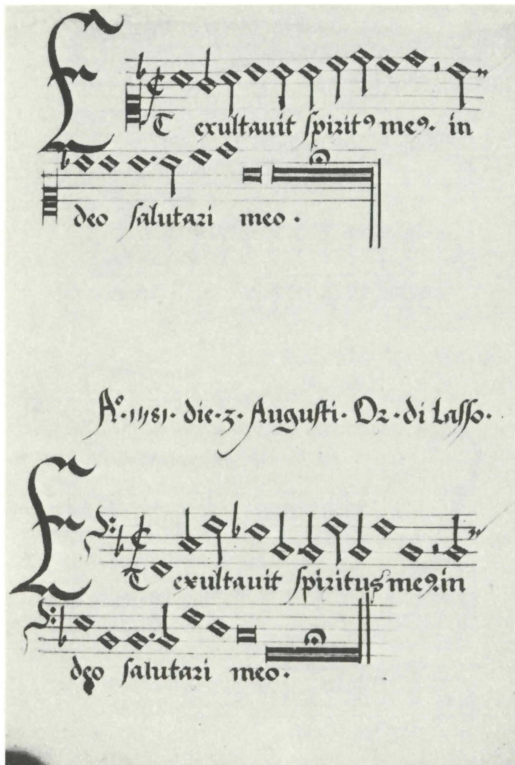 ET exultauit spiritꝰ meꝰ· in
deo salutari meo ·
Aº· 1581· die· 3· Augusti· Or· di Lasso·
ET exultauit spiritus meꝰ in
deo salutari meo ·